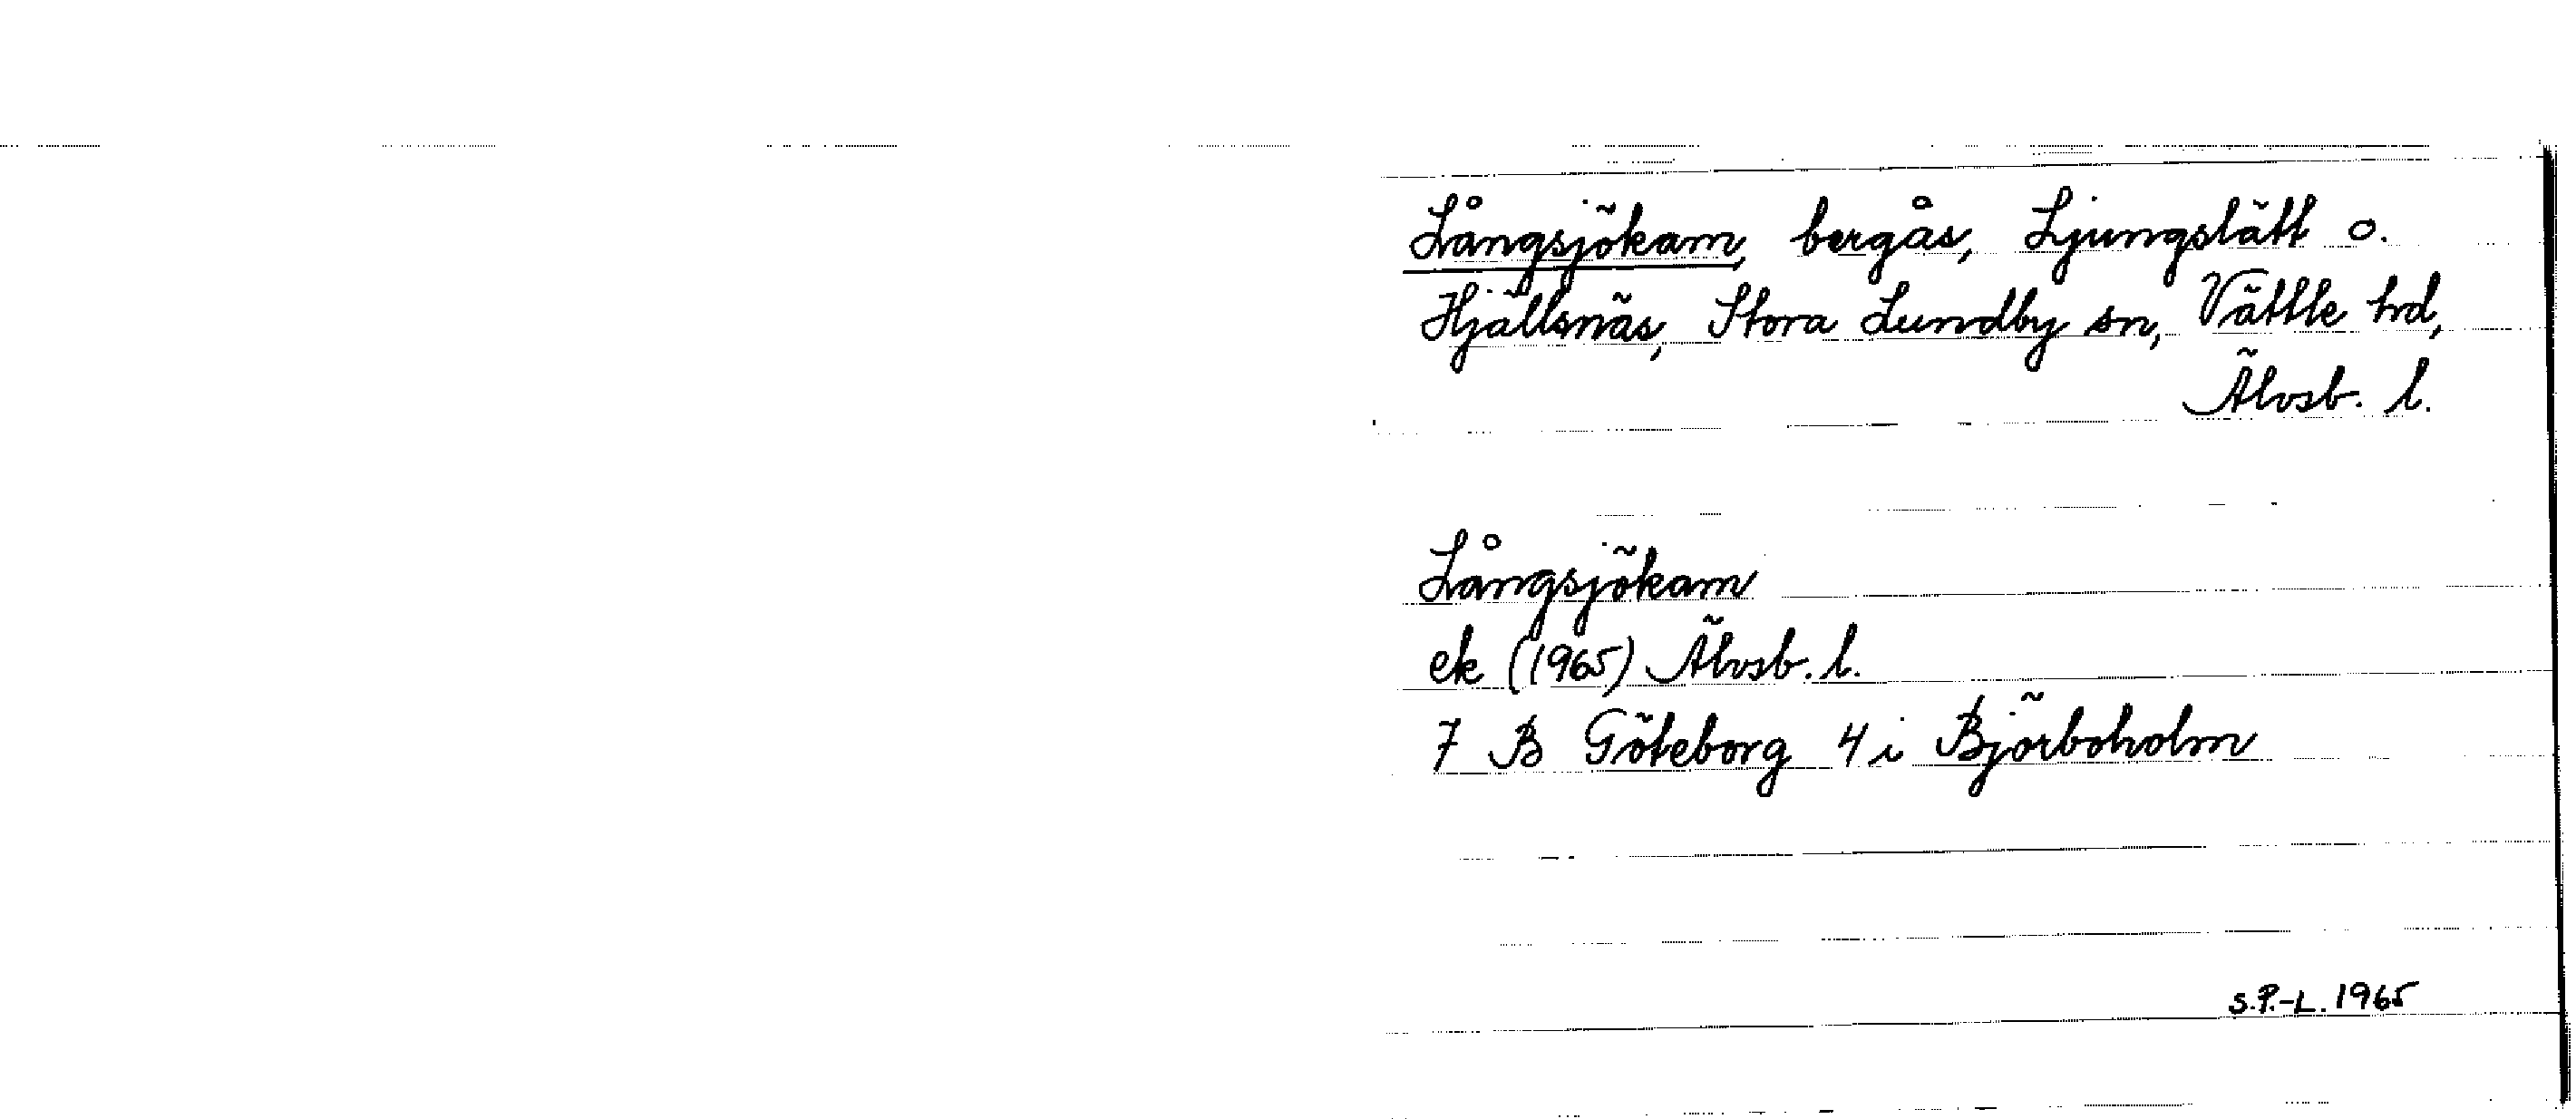 Långsjökam, bergås, Ljungslätt o.
Hjällsnäs, Stora Lundby sn, Vättle hd,
Älvsb. l.
Långsjökam
ek (1965) Älvsb. l.
7 B Göteborg 4 i Björboholm
S.P.-L. 1965